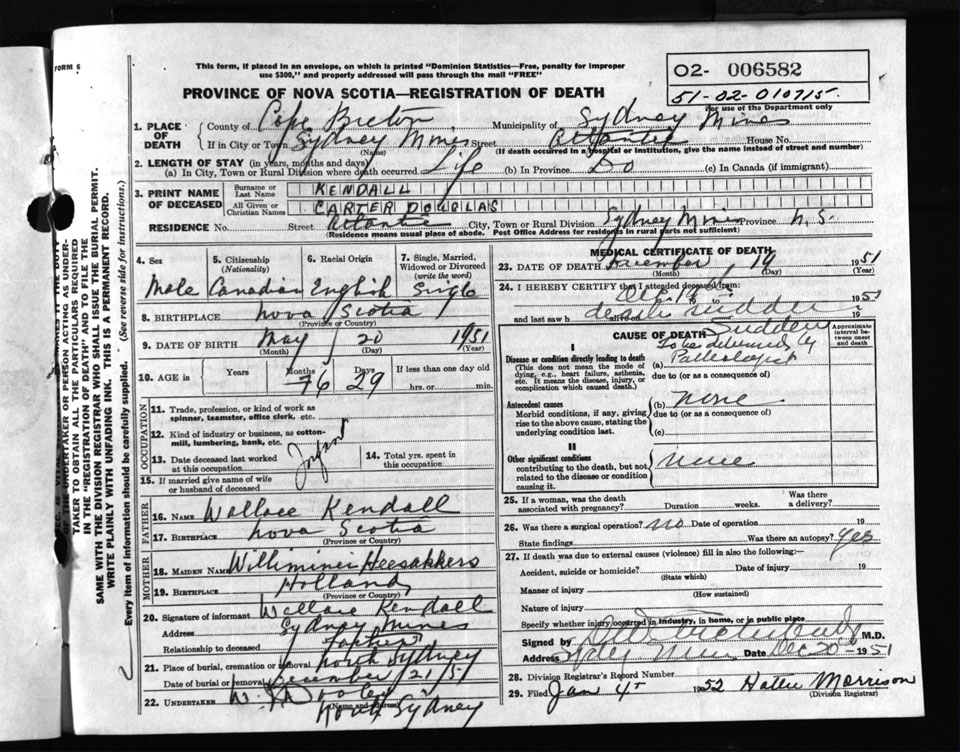 FORM 6
This form, if placed in an envelope, on which is printed "Dominion Statistics—Free, penalty for improper
use $300," and properly addressed will pass through the mail "FREE"
02- 006582
51-02-010715
For use of the Department only
PROVINCE OF NOVA SCOTIA—REGISTRATION OF DEATH
1. PLACE OF DEATH
County of Cape Breton Municipality of Sydney Mines
If in City or Town Sydney Mines Street Atlantic House No.
(Name) (If death occurred in a hospital or institution, give the name instead of street and number)
2. LENGTH OF STAY (in years, months and days)
(a) In City, Town or Rural Division where death occurred Life (b) In Province Do (c) In Canada (if immigrant)
3. PRINT NAME OF DECEASED
Surname or Last Name KENDALL
All Given or Christian Names CARTER DOUGLAS
RESIDENCE No. Street Atlantic City, Town or Rural Division Sydney Mines Province N.S.
(Residence means usual place of abode. Post Office Address for residents in rural parts not sufficient)
4. Sex
5. Citizenship (Nationality)
6. Racial Origin
7. Single, Married, Widowed or Divorced (write the word)
Male Canadian English Single
8. BIRTHPLACE Nova Scotia
(Province or Country)
9. DATE OF BIRTH May 20 1951
(Month) (Day) (Year)
10. AGE in Years Months Days If less than one day old
29 hrs. or min.
OCCUPATION
11. Trade, profession, or kind of work as spinner, teamster, office clerk, etc.
12. Kind of industry or business, as cotton-mill, lumbering, bank, etc.
Infant
13. Date deceased last worked at this occupation
14. Total yrs. spent in this occupation
15. If married give name of wife or husband of deceased
FATHER
16. NAME Wallace Kendall
17. BIRTHPLACE Nova Scotia
(Province or Country)
MOTHER
18. MAIDEN NAME Williminei Heesakkers
19. BIRTHPLACE Holland
(Province or Country)
20. Signature of informant Wallace Kendall
Address Sydney Mines
Relationship to deceased Father
21. Place of burial, cremation or removal North Sydney
Date of burial or removal December /21/51
22. UNDERTAKER
(Name and address)
North Sydney
MEDICAL CERTIFICATE OF DEATH
23. DATE OF DEATH December 19 1951
(Month) (Day) (Year)
24. I HEREBY CERTIFY that I attended deceased from:
Dec. 19 to 1951
and last saw h alive on 19
CAUSE OF DEATH
Approximate interval between onset and death
Sudden
I
Disease or condition directly leading to death
(This does not mean the mode of dying, e.g., heart failure, asthenia, etc. It means the disease, injury, or complication which caused death.)
(a) To be determined by Pathologist
due to (or as consequence of)
Antecedent causes
Morbid conditions, if any, giving rise to the above cause, stating the underlying condition last.
(b) none
due to (or as consequence of)
(c)
II
Other significant conditions
contributing to the death, but not related to the disease or condition causing it.
none
25. If a woman, was the death associated with pregnancy? Duration weeks. Was there a delivery?
26. Was there a surgical operation? no Date of operation 19
State findings Was there an autopsy? Yes
27. If death was due to external causes (violence) fill in also the following:—
Accident, suicide or homicide? Date of injury 19
(State which)
Manner of injury
(How sustained)
Nature of injury
Specify whether injury occurred in industry, in home, or in public place
Signed by M.D.
Address Sydney Mines Date Dec 20 - 1951
28. Division Registrar's Record Number
29. Filed Jan 4 1952 Hattie Morrison
(Division Registrar)
OF THE UNDERTAKER OR PERSON ACTING AS UNDER-
TAKER TO OBTAIN ALL THE PARTICULARS REQUIRED
IN THE "REGISTRATION OF DEATH" AND TO FILE THE
SAME WITH THE DIVISION REGISTRAR WHO SHALL ISSUE THE BURIAL PERMIT.
WRITE PLAINLY WITH UNFADING INK. THIS IS A PERMANENT RECORD.
Every item of information should be carefully supplied. (See reverse side for instructions.)